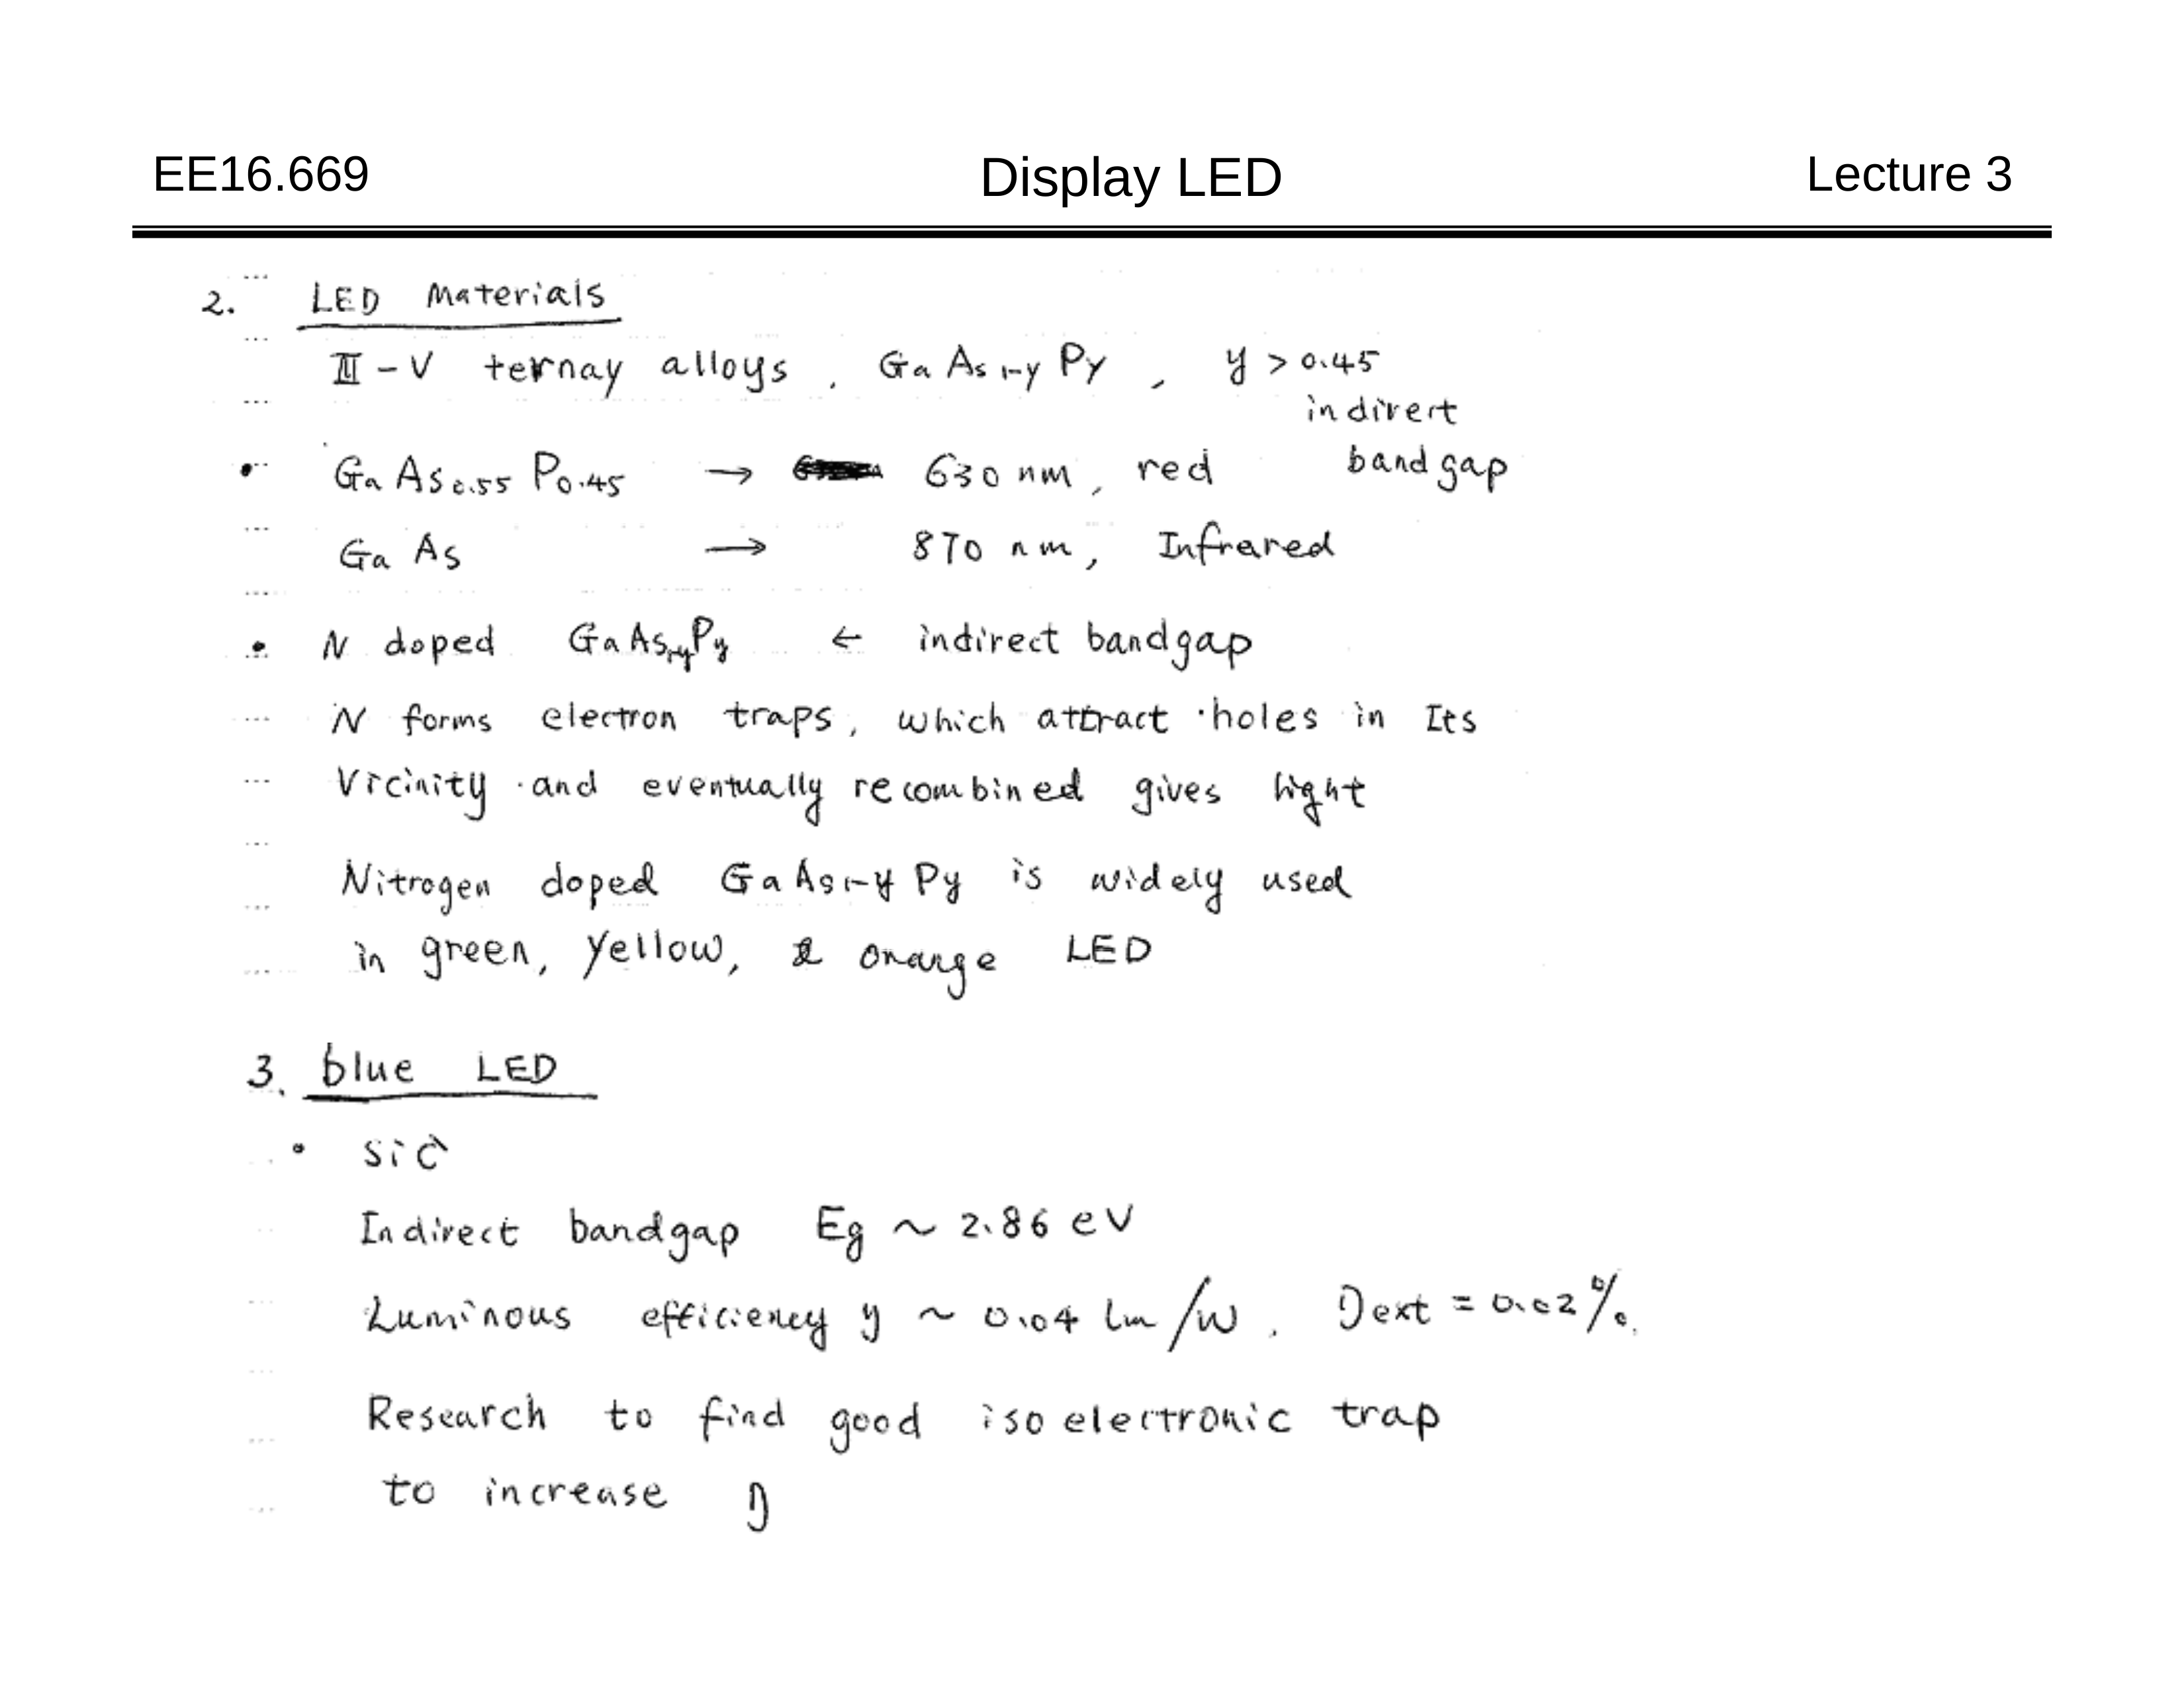 EE16.669 Display LED Lecture 3
2. LED Materials
III-V ternay alloys, GaAs1-yPy, y > 0.45
indirect
GaAs0.55P0.45 → 630 nm, red bandgap
GaAs → 870 nm, Infrared
• N doped GaAs1-yPy ← indirect bandgap
N forms electron traps, which attract holes in Its
Vicinity and eventually recombined gives light
Nitrogen doped GaAs1-yPy is widely used
in green, yellow, & orange LED
3. blue LED
• SiC
Indirect bandgap Eg ~ 2.86 eV
Luminous efficiency η ~ 0.04 lm/W. ηext = 0.02%.
Research to find good isoelectronic trap
to increase η